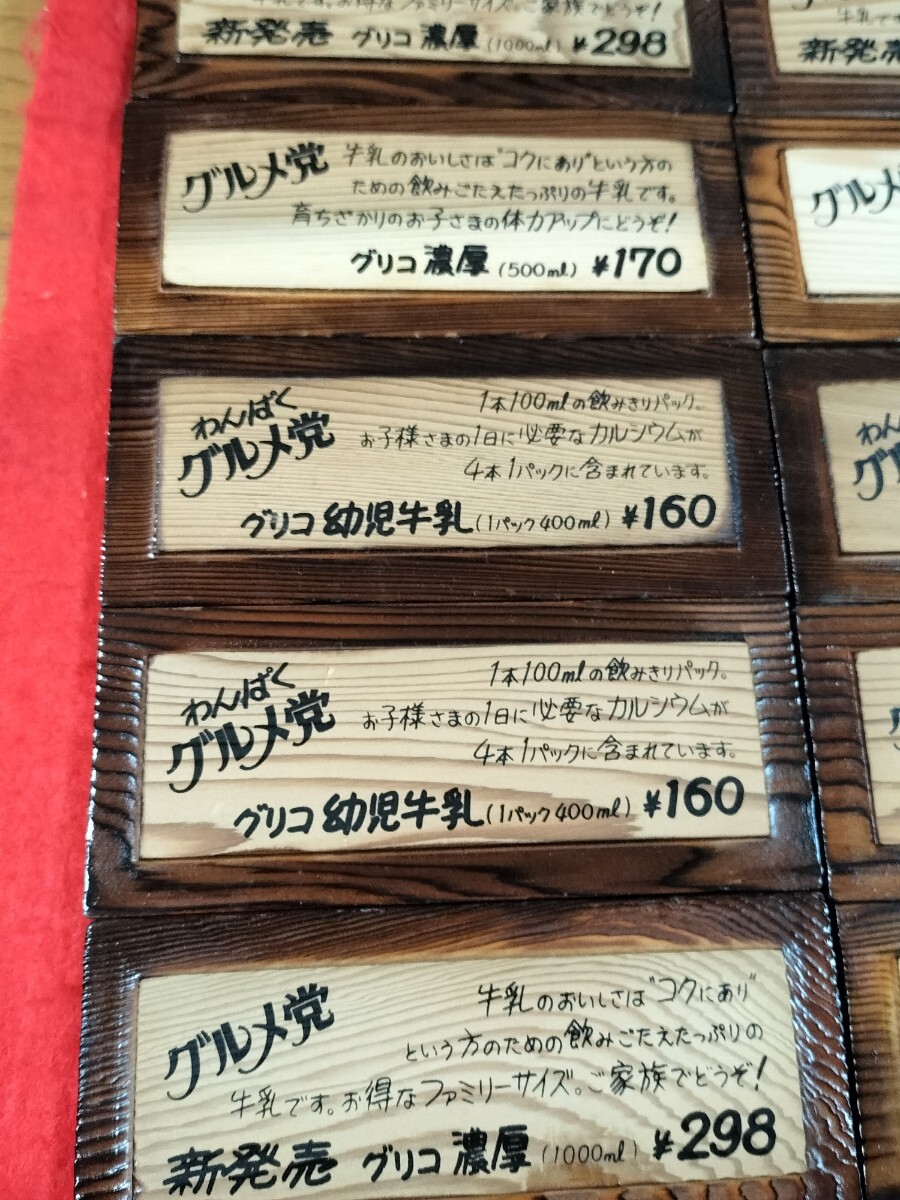 牛乳です。お得なファミリーサイズ。ご家族でどうぞ!
新発売 グリコ 濃厚 (1000ml) ¥298
グルメ党
牛乳のおいしさは"コクにあり"という方の
ための飲みごたえたっぷりの牛乳です。
育ちざかりのお子さまの体力アップにどうぞ!
グリコ 濃厚 (500ml) ¥170
わんぱく
グルメ党
1本100mlの飲みきりパック。
お子様さまの1日に必要なカルシウムが
4本1パックに含まれています。
グリコ 幼児牛乳 (1パック400ml) ¥160
わんぱく
グルメ党
1本100mlの飲みきりパック。
お子様さまの1日に必要なカルシウムが
4本1パックに含まれています。
グリコ 幼児牛乳 (1パック400ml) ¥160
グルメ党
牛乳のおいしさは"コクにあり"
という方のための飲みごたえたっぷりの
牛乳です。お得なファミリーサイズ。ご家族でどうぞ!
新発売 グリコ 濃厚 (1000ml) ¥298
牛乳で
新発売
グルメ
わん
グル